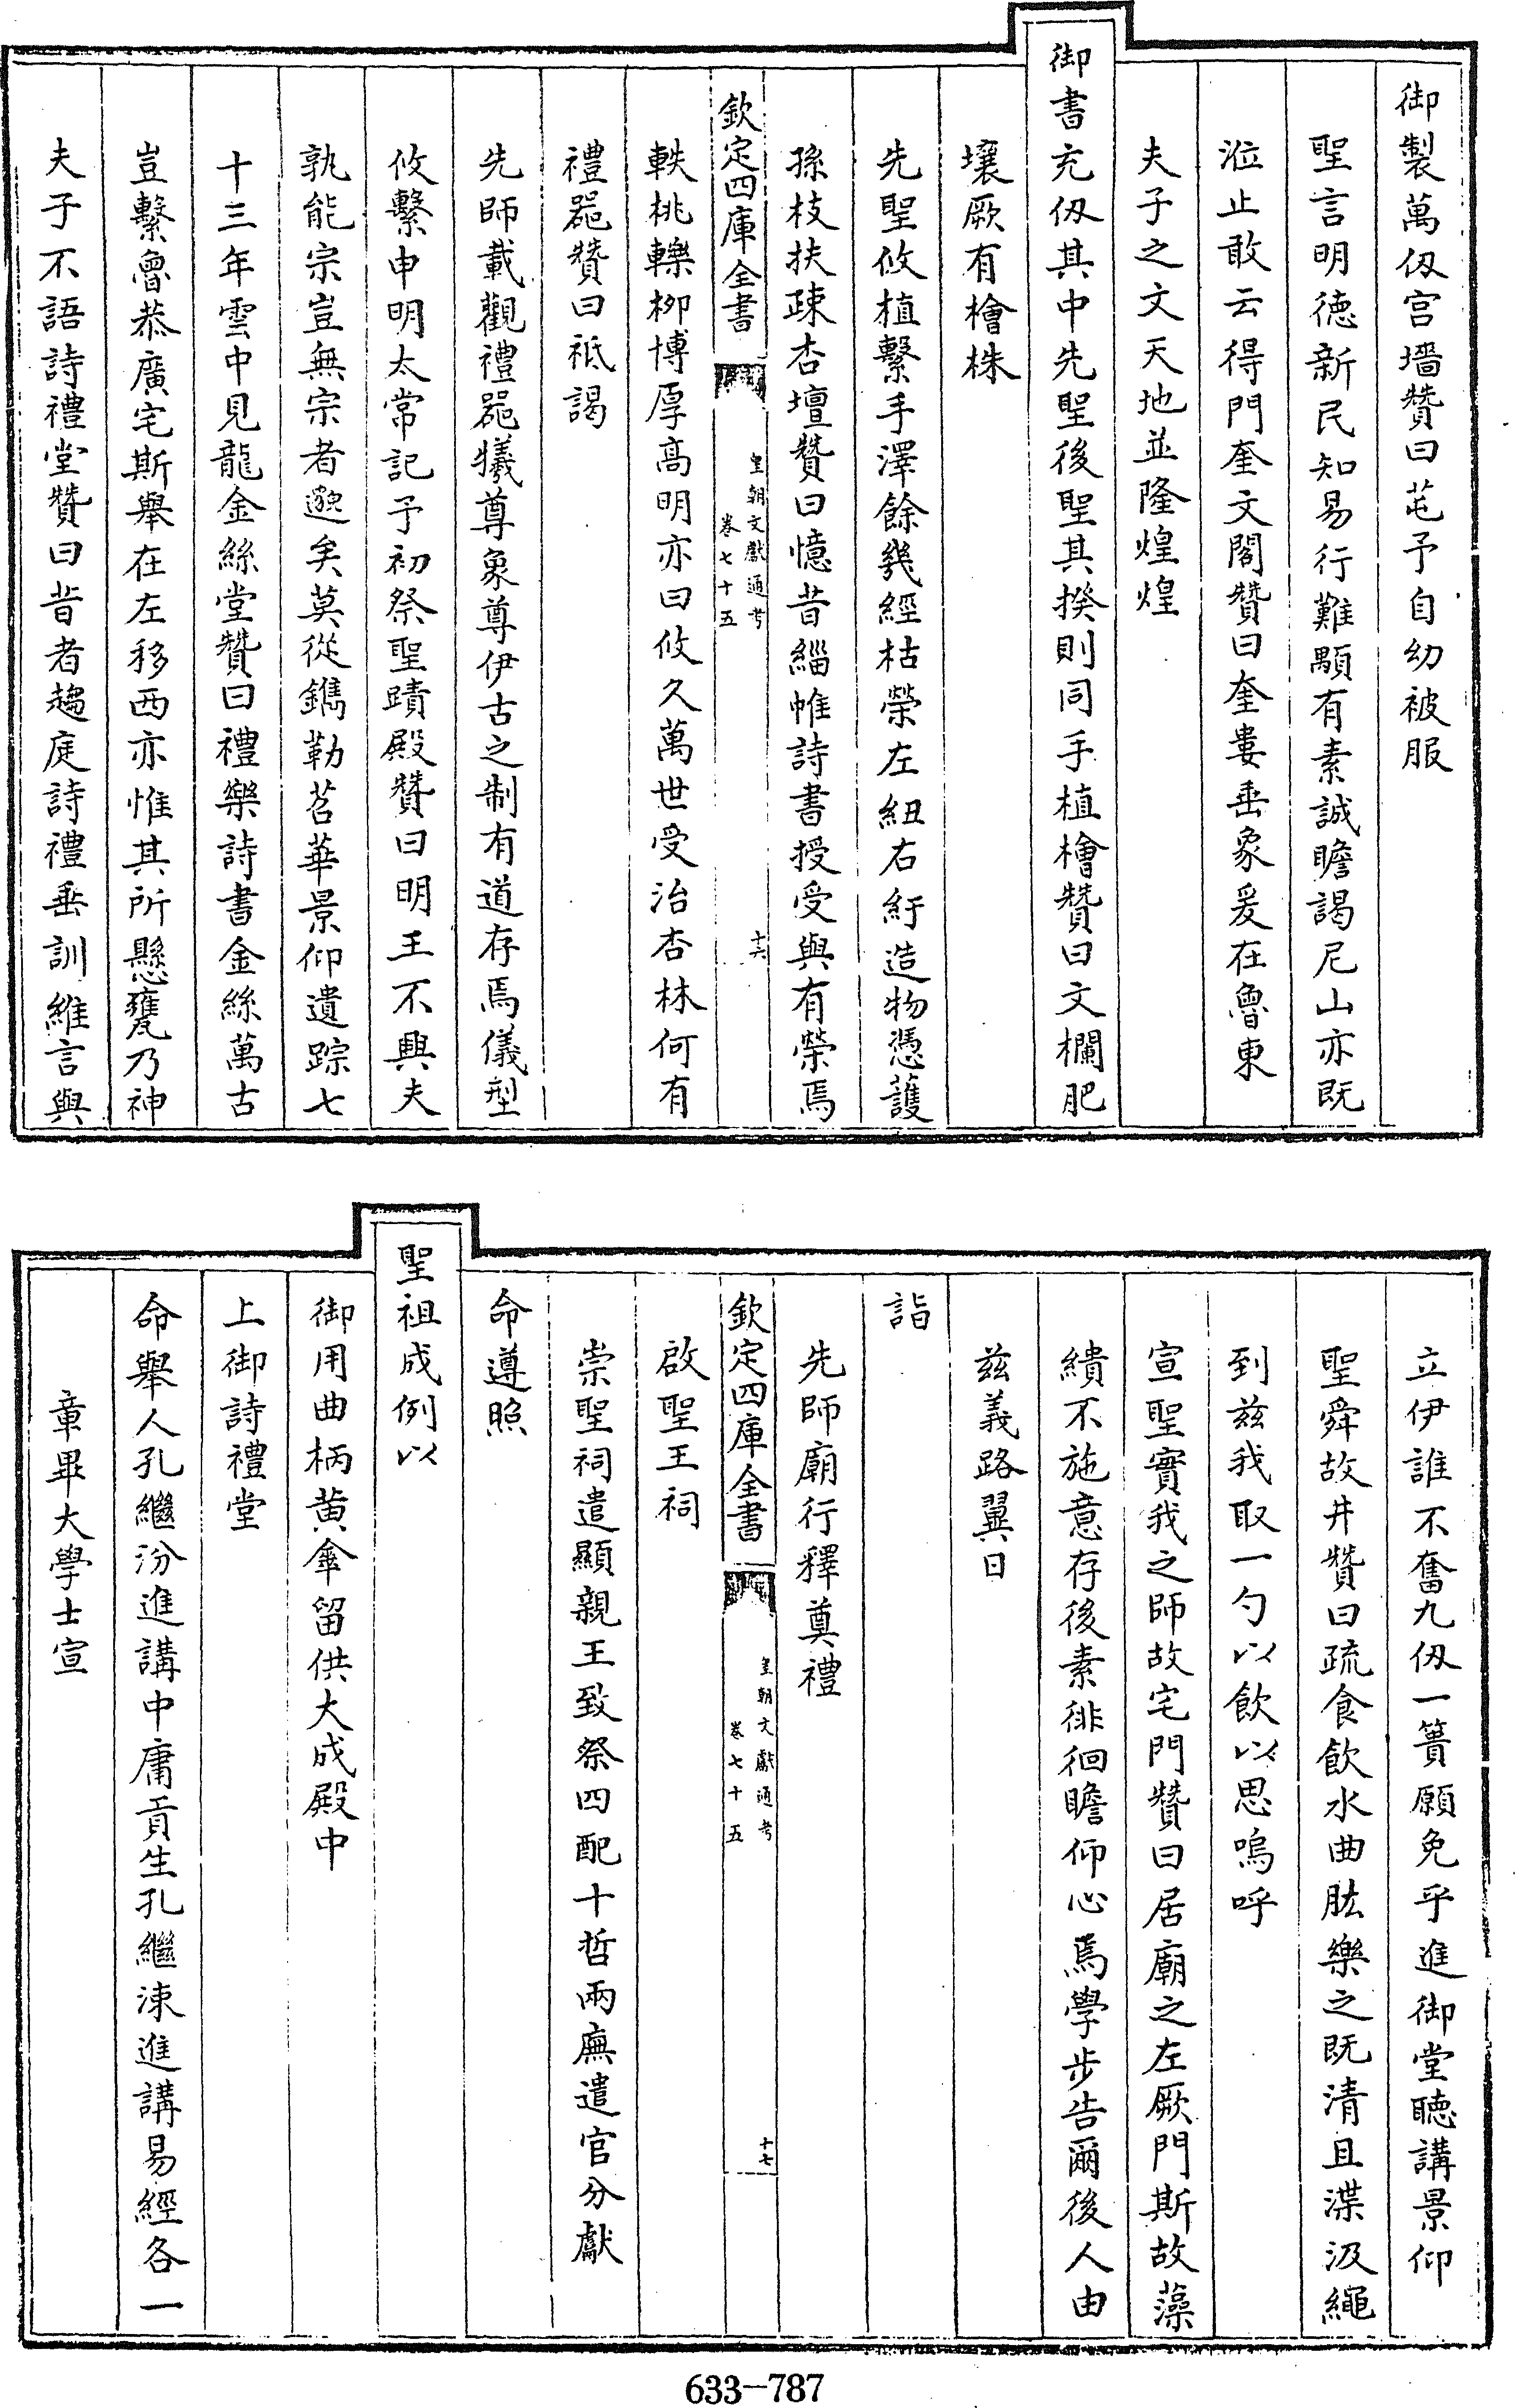 御製萬仭宫墻贊曰芚予自幼被服
聖言明徳新民知易行難顒有素誠瞻謁尼山亦既
涖止敢云得門奎文閣贊曰奎婁垂象爰在魯東
夫子之文天地並隆煌煌
御書充仭其中先聖後聖其揆則同手植檜贊曰文欄肥
壤厥有檜株
先聖攸植繫手澤餘幾經枯榮左紐右紆造物憑護
孫枝扶疎杏壇贊曰憶昔緇帷詩書授受與有榮焉
欽定四庫全書
皇朝文獻通考
卷七十五
十六
軼桃轢栁博厚髙明亦曰攸久萬世受治杏林何有
禮噐贊曰祗謁
先師載觀禮噐犧尊象尊伊古之制有道存焉儀型
攸繫申明太常記予初祭聖蹟殿贊曰明王不興夫
孰能宗豈無宗者邈矣莫從鐫勒苕華景仰遺踪七
十三年雲中見龍金絲堂贊曰禮樂詩書金絲萬古
豈繫魯恭廣宅斯舉在左移西亦惟其所懸甕乃神
夫子不語詩禮堂贊曰昔者趨庭詩禮垂訓維言與
立伊誰不奮九仭一簣願免乎進御堂聽講景仰
聖舜故井贊曰疏食飲水曲肱樂之既清且渫汲繩
到兹我取一勺以飲以思嗚呼
宣聖實我之師故宅門贊曰居廟之左厥門斯故藻
繢不施意存後素徘徊瞻仰心焉學步告爾後人由
兹義路翼日
詣
先師廟行釋奠禮
欽定四庫全書
皇朝文獻通考
卷七十五
十七
啟聖王祠
崇聖祠遣顯親王致祭四配十哲兩廡遣官分獻
命遵照
聖祖成例以
御用曲柄黄傘留供大成殿中
上御詩禮堂
命舉人孔繼汾進講中庸貢生孔繼涑進講易經各一
章畢大學士宣
633—787